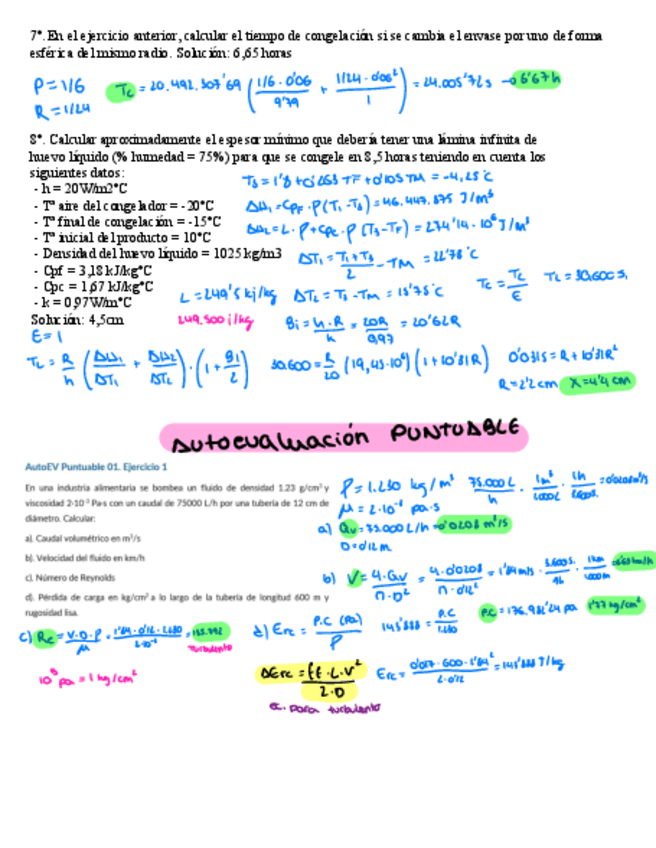 7*. En el ejercicio anterior, calcular el tiempo de congelación si se cambia el envase por uno de forma
esférica del mismo radio. Solución: 6,65 horas
P = 1/6
R = 1/24
Tc = 20.492.307'69 ( 1/6 · 0'06 / 9'79 + 1/24 · 0'06² / 1 ) = 24.005'72 s → 6'67 h
8*. Calcular aproximadamente el espesor mínimo que debería tener una lámina infinita de
huevo líquido (% humedad = 75%) para que se congele en 8,5 horas teniendo en cuenta los
siguientes datos:
- h = 20W/m2*C
- Tª aire del congelador = -20*C
- Tª final de congelación = -15*C
- Tª inicial del producto = 10*C
- Densidad del huevo líquido = 1025 kg/m3
- Cpf = 3,18 kJ/kg*C
- Cpc = 1,67 kJ/kg*C
- k = 0,97W/m*C
Solución: 4,5cm
T3 = 1'8 + 0'263 TF + 0'105 TM = -4,25 ºC
ΔH1 = CPF · ρ (T1 - T3) = 46.447.875 J/m³
ΔH2 = L · ρ + CPC · ρ (T3 - TF) = 274'14 · 10⁶ J/m³
ΔT1 = T1 + T3 / 2 - TM = 22'78 ºC
L = 249'5 kJ/kg
249.500 J/kg
ΔT2 = T3 - TM = 15'75 ºC
Tc = TL / E
TL = 30.600 s
Bi = h · R / k = 20R / 0,97 = 20'62R
E = 1
TL = R / h ( ΔH1 / ΔT1 + ΔH2 / ΔT2 ) · ( 1 + Bi / 2 )
30.600 = R / 20 (19,43·10⁶) (1 + 10'31R)
0'0315 = R + 10'31R²
R = 2'2 cm
X = 4'4 cm
AUTOEVALUACIÓN PUNTUABLE
AutoEV Puntuable 01. Ejercicio 1
En una industria alimentaria se bombea un fluido de densidad 1.23 g/cm³ y
viscosidad 2·10⁻³ Pa·s con un caudal de 75000 L/h por una tubería de 12 cm de
diámetro. Calcular:
a). Caudal volumétrico en m³/s
b). Velocidad del fluido en km/h
c). Número de Reynolds
d). Pérdida de carga en kg/cm² a lo largo de la tubería de longitud 600 m y
rugosidad lisa.
ρ = 1.230 kg/m³
75.000 L / h · 1m³ / 1000L · 1h / 3600s = 0'0208 m³/s
μ = 2·10⁻³ pa·s
a) Qv = 75.000 L/h = 0'0208 m³/s
D = 0'12 m
b) V = 4·Qv / π·D² = 4·0'0208 / π·0'12² = 1'84 m/s · 3.600 s / 1h · 1km / 1000m
c) Re = V·D·ρ / μ
turbulento
10⁵ pa = 1 kg/cm²
d) Erc = P.C (Pa) / ρ
145'888 = P.C / 1.230
1'77 kg/cm²
ΔErc = ff·L·V² / 2·D
Ec. para turbulento
Erc = 0'017 · 600 · 1'84² / 2·0'12